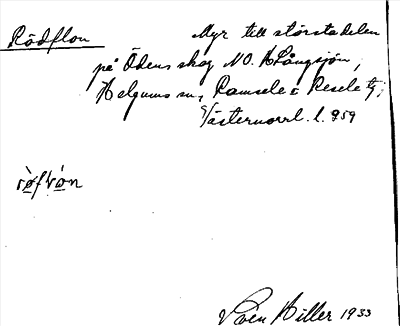 Rödflon
Myr till största delen
på Ödens skog NO. Långsjön,
Helgums sn, Ramsele o Resele tg,
Västernorrl. l. 959
ròflvon
Sven Hiller 1933